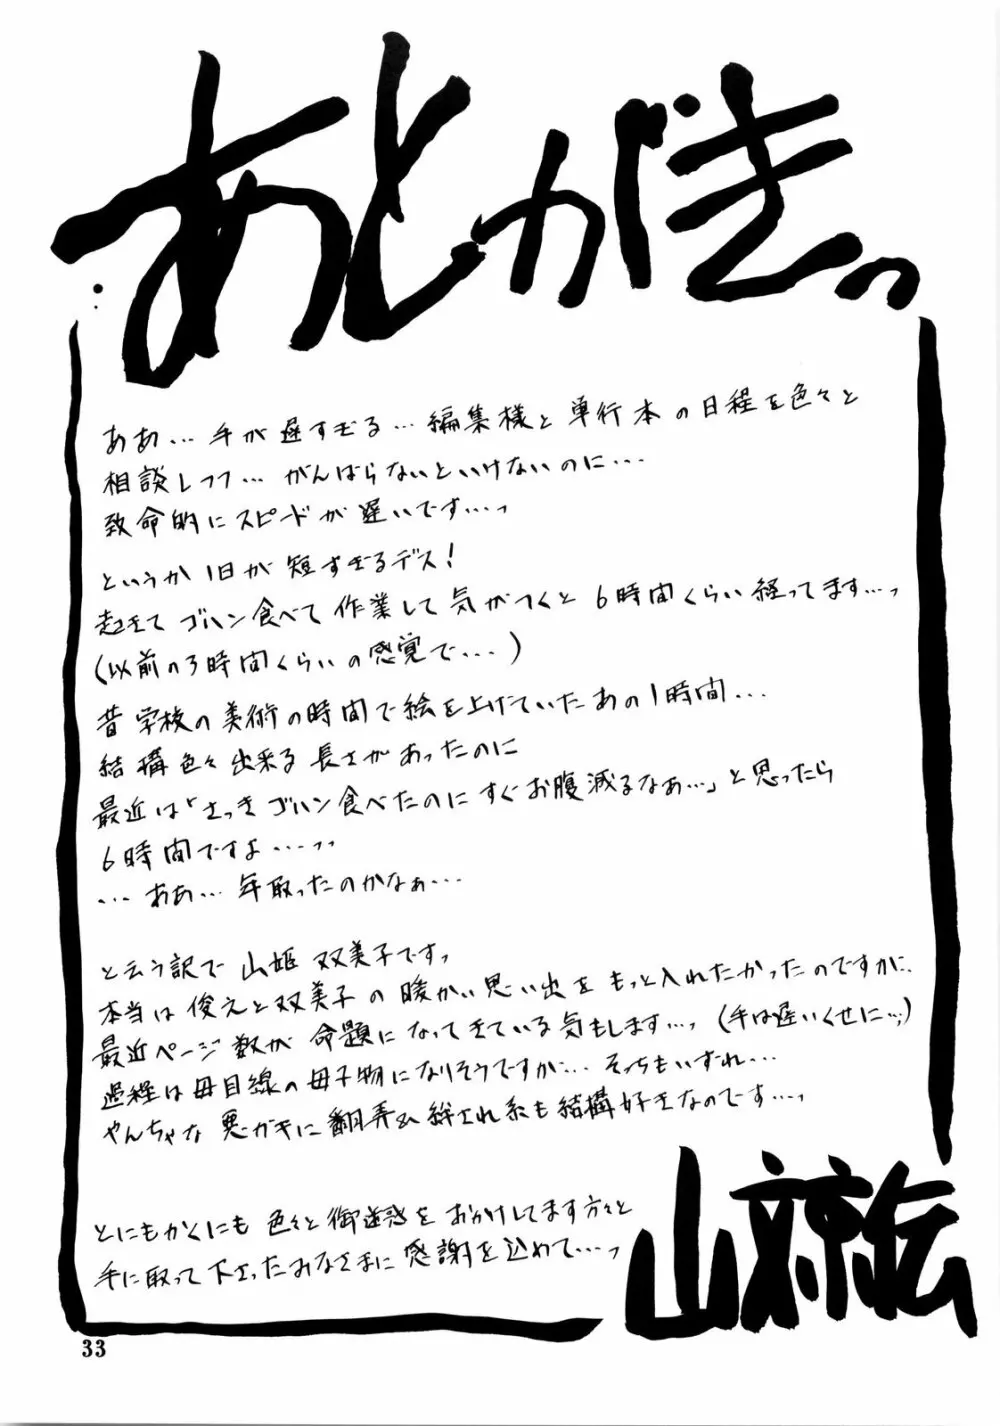 あとがきっ
ああ…手が遅すぎる…編集様と単行本の日程を色々と
相談しつつ…がんばらないといけないのに…
致命的にスピードが遅いです…っ
というか1日が短すぎるデス！
起きてゴハン食べて作業して気がつくと6時間くらい経ってます…っ
（以前の3時間くらいの感覚で…）
昔学校の美術の時間で絵を上げていたあの1時間…
結構色々出来る長さがあったのに
最近は「さっきゴハン食べたのにすぐお腹減るなぁ…」と思ったら
6時間ですよ…っっ
…ああ…年取ったのかなぁ…
と云う訳で山姫双美子ですっ
本当は俊えと双美子の暖かい思い出をもっと入れたかったのですが、
最近ページ数が命題になってきている気もします…っ（手は遅いくせに…っ）
過程は母目線の母子物になりそうですが…そっちもいずれ…
やんちゃな悪ガキに翻弄&絆され系も結構好きなのです…っ
とにもかくにも色々と御迷惑をおかけしてます方々と
手に取って下さったみなさまに感謝を込めて…っ
山文京伝
33